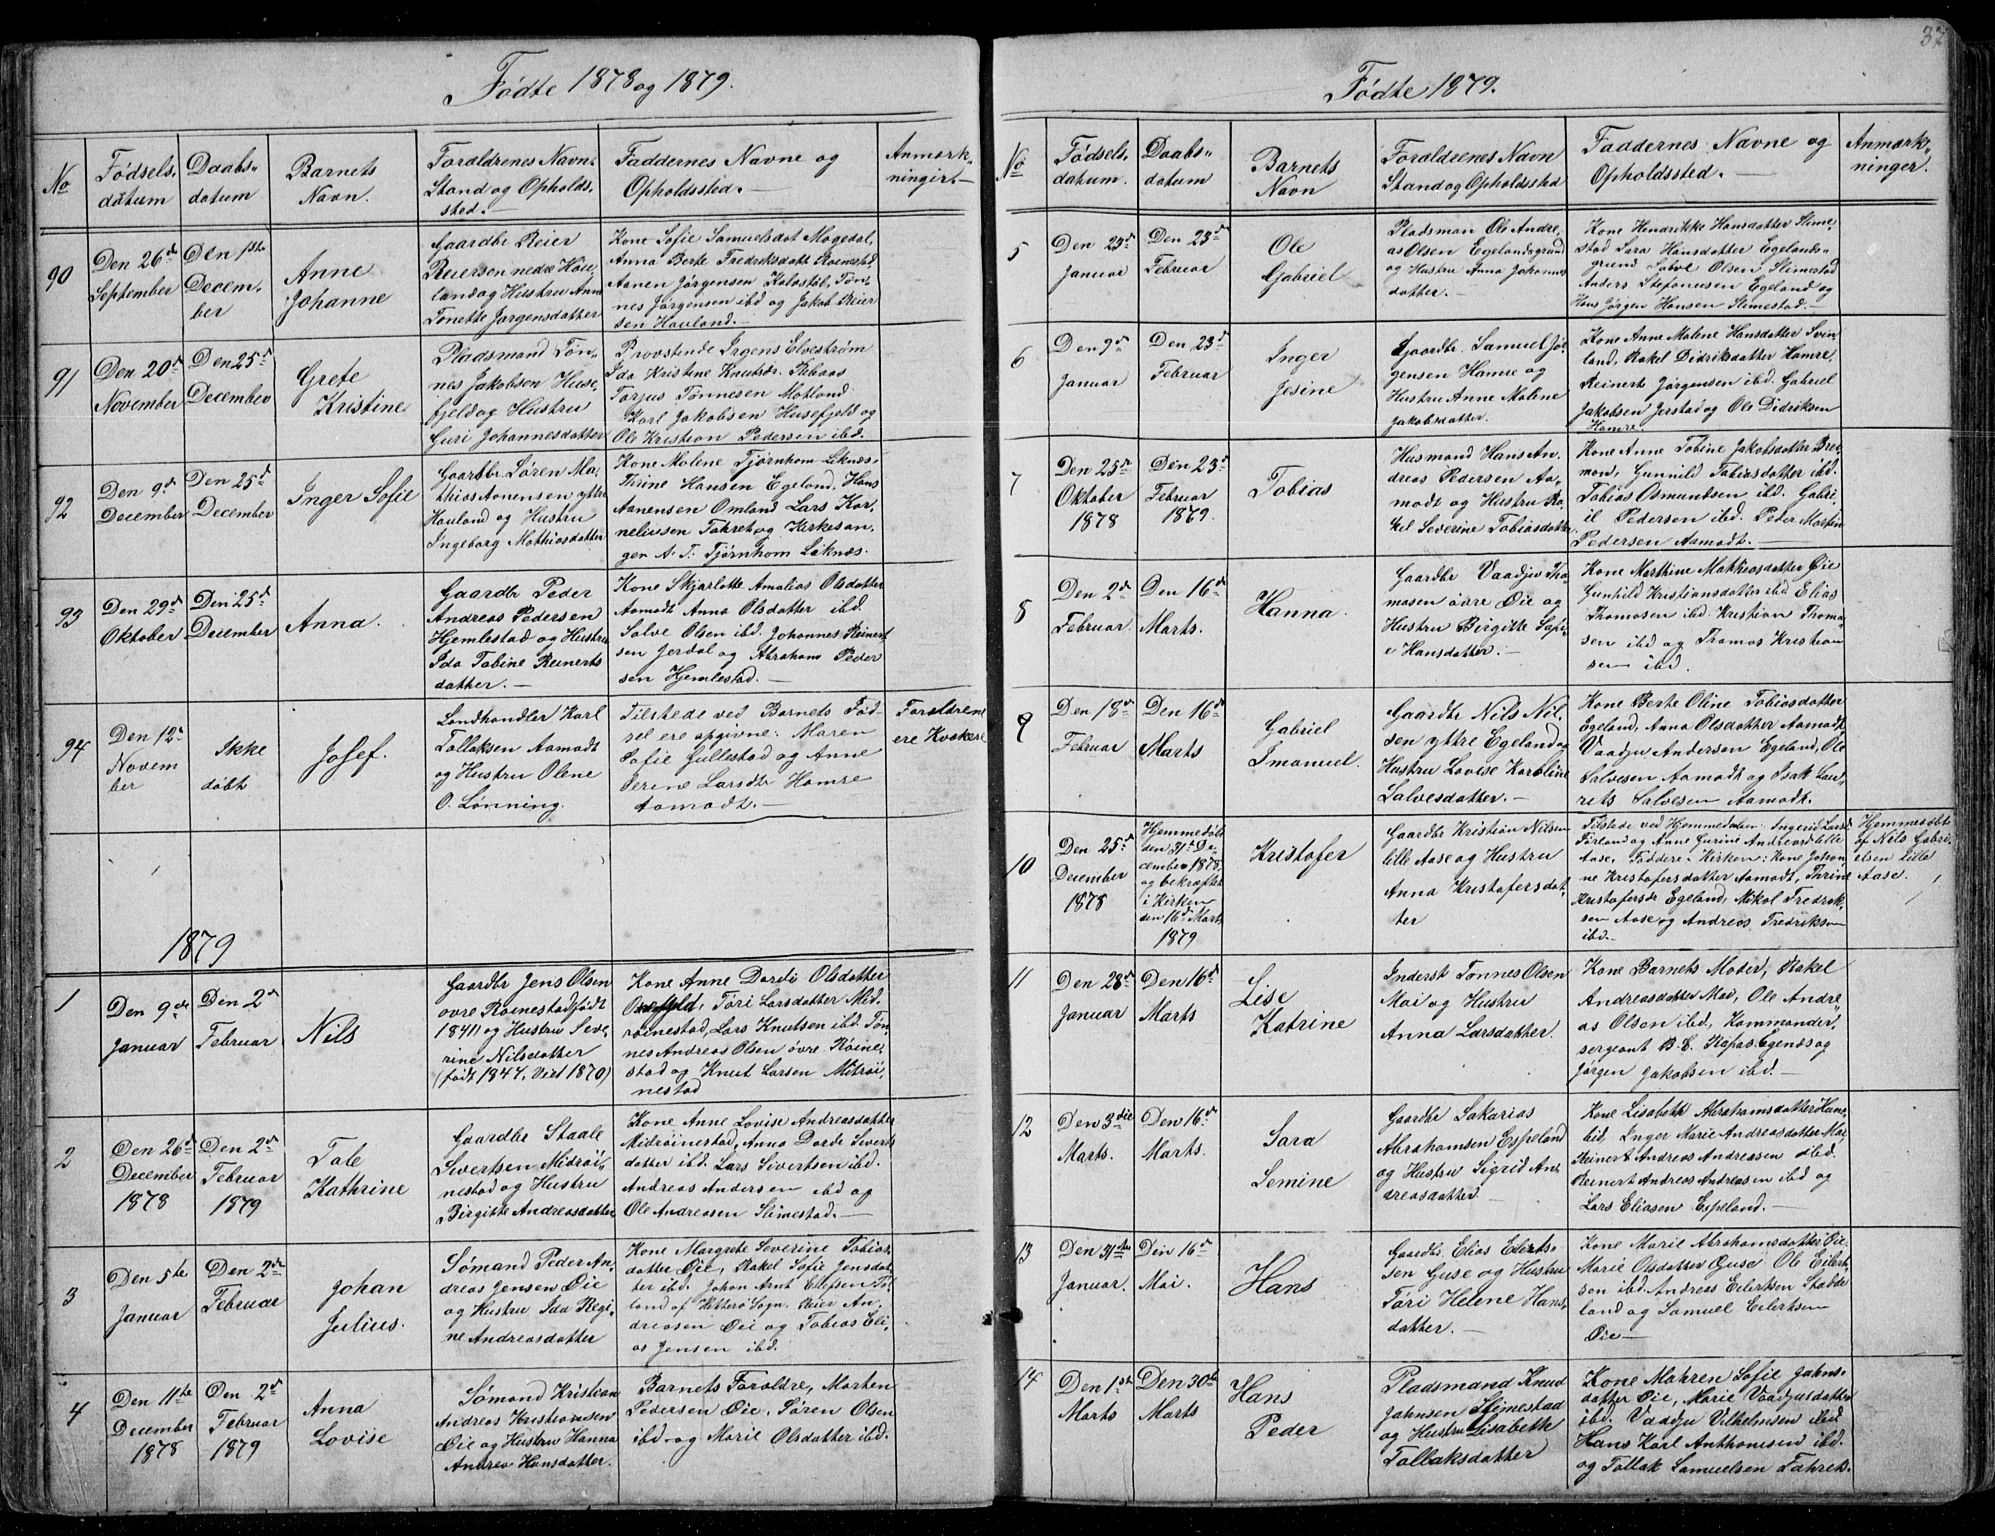 Fødte 1878 og 1879.
No
Fødsels-
datum
Daabs-
datum
Barnets
Navn.
Foraldrenes Navn
Stand og Opholds-
sted.
Faddernes Navne og
Opholdssted.
Anmærk-
ninger.
90
Den 26d
September
Den 1ste
Decem-
ber
Anne
Johanne
Gaardbr Reier
Reiersen nedre Hau-
land og Hustru Anne
Tonette Jørgensdatter
Kone Sofie Samuelsdat Mogedal,
Anna Berte Fredriksdatt Roenestad
Aanen Jørgensen Kolostøl, Tøn-
nes Jørgensen ibd og Jakob Reier
sen Hauland.
91
Den 20d
November
Den 25d
December
Grete
Kristine
Pladsmand Tøn-
nes Jakobsen Huse-
fjeld og Hustru
Guri Johannesdatter
Provstinde Irgens Elvestrøm
Ida Kristine Knutsdr.
Torjus Tønnesen Motland
Karl Jakobsen Husefjeld og
Ole Kristian Pedersen ibd.
92
Den 9d
December
Den 25d
December
Inger Sofie
Gaardbr Søren Ma-
thias Aanensen ytre
Hauland og Hustru
Ingeborg Mathiasdatter
Kone Malene Tjørnhom Liknes.
Thrine Hansen Egeland, Hans
Aanensen Omland Lars Kor-
neliussen Fahret og Kirkesan-
ger A. T. Tjørnhom Liknes.
93
Den 29d
Oktober
Den 25d
December
Anna.
Gaardbr Peder
Andreas Pedersen
Hjemlestad og Hustru
Ida Tobine Reinerts
datter.
Kone Skjarlotte Amalias Olsdatter
Aamodt Anna Olsdatter ibd
Salve Olsen ibd. Johannes Reinert
sen Jerdal og Abraham Peder
sen Hjemlestad.
94
Den 12d
Novem
ber
Ikke
døbt
Josef.
Landhandler Karl
Tollaksen Aamodt
og Hustru Olene
O. Lønning.
Tilstede ved Barnets Fød-
sel ere opgivne: Maren
Sofie Gullestad og Anne
Serine Larsdtr Hamre
Aamodt.
Foraldrene
ere Kvækere
1879
1
Den 9de
Januar
Den 2d
Februar
Nils
Gaardbr Jens Olsen
øvre Roinestad (født
1841) og Hustru Seve-
rine Nilsdatter
(født 1847, Viet 1870)
Kone Anne Dordi Olsdatter
Tøri Larsdatter Mid-
roinestad, Lars Knutsen ibd. Tøn-
nes Andreas Olsen øvre Roine-
stad og Knut Larsen Mitroi-
nestad
2
Den 26d
December
1878
Den 2d
Februar
1879
Tale
Kathrine
Gaardbr Staale
Sivertsen Midroi-
nestad og Hustru
Birgitte Andreasdatter
Kone Anne Lovise Andreasdatter
Midroinestad, Anna Dorde Siverts
datter ibd. Lars Sivertsen ibd.
Andreas Andersen ibd og
Ole Andreasen Slimestad.
3
Den 5te
Januar
Den 2de
Februar
Johan
Julius.
Sømand Peder An-
dreas Jensen Øie
og Hustru Ida Regi-
ne Andreasdatter
Kone Margrete Severine Tobias
datter Øie, Rakel Sofie Jensdat
ter ibd. Johan Arnt Elefsen Jø-
land af Hitterø Sogn. Reier An-
dreasen Øie og Tobias Eli-
as Jensen ibd.
4
Den 11te
December
1878
Den 2d
Februar
1879
Anna
Lovise
Sømand Kristian
Andreas Kristiansen
Øie og Hustru Hanna
Andrea Hansdatter.
Barnets Foraldre, Morten
Pedersen Øie, Søren Olsen
ibd og Marie Olsdatter ibd.
37
Fødte 1879.
No
Fødsels-
datum.
Daabs-
datum
Barnets
Navn
Foraldrenes Navn
Stand og Opholdssted
Faddernes Navne og
Opholdssted.
Anmærk-
ninger.
5
Den 23d
Januar
Den 23d
Februar
Ole
Gabriel
Pladsman Ole Andre-
as Olsen Egelandsgrund
og Hustru Anna Johannes
datter.
Kone Hendrikke Hansdatter Slime-
stad Sara Hansdatter Egelands-
grund Salve Olsen Slimestad
Anders Stefanusen Egeland og
Hans Jørgen Hansen Slimestad.
6
Den 9d
Januar
Den 23d
Februar
Inger
Jesine
Gaardbr. Samuel Jør-
gensen Hamre og
Hustru Anne Malene
Jakobsdatter.
Kone Anne Malene Hansdatter Svin-
land, Rakel Didriksdatter Hamre,
Reinert Jørgensen ibd. Gabriel
Jakobsen Jerstad og Ole Didriksen
Hamre.
7
Den 25d
Oktober
1878
Den 23d
Februar
1879.
Tobias
Husmand Hans An-
dreas Pedersen Aa-
modt og Hustru Ra-
kel Severine Tobiasdatter
Kone Anne Tobine Jakobsdatter Bre-
mon, Gunnild Tobiasdatter ibd.
Tobias Osmundsen ibd. Gabri
il Pedersen ibd. Peder Martin
Pedersen Aamodt.
8
Den 2d
Februar.
Den 16d
Marts.
Hanna.
Gaardbr Vaadjer Tho-
masen øvre Øie og
Hustru Birgitte Sofi-
e Hansdatter.
Kone Marthine Mathiasdatter Øie
Gunhild Kristiansdatter ibd Elias
Thomasen ibd. Kristian Thoma-
sen ibd og Thomas Kristian
sen ibd.
9
Den 18d
Februar
Den 16d
Marts
Gabriel
Imanuel.
Gaardbr Nils Nil-
sen ytre Egeland og
Hustru Lovise Karoline
Salvesdatter.
Kone Berte Oline Tobiasdatter
Egeland, Anna Olsdatter Aamodt,
Vaadju Andersen Egeland, Ole
Salvesen Aamodt og Isak Lau-
rets Salvesen Aamodt.
10
Den 25d
December
1878
Hjemmedøbt
den 31d De-
cember 1878.
og bekræftet
i Kirken
den 16d Marts
1879
Kristofer
Gaardbr Kristian Nilsen
lille Aase og Hustru
Anna Kristofersdat-
ter
Tilstede ved Hjemmedaaben: Ingerid Larsd
Sørland og Anne Gurine Andreasd lille
Aase. Faddere i Kirken: Kone Johan
ne Kristofersdatter Aamodt, Thrine
Kristofersdr Egeland, Mikal Fredrik-
sen Aase og Andreas Fredriksen
ibd.
Hjemmedøbt
af Nils Gabri-
elsen lille
Aase.
11
Den 28d
Januar
Den 16d
Marts
Lise
Katrine
Inderst Tønnes Olsen
Moi og Hustru
Anna Larsdatter.
Kone Barnets Moder, Rakel
Andreasdatter Moi, Ole Andre-
as Olsen ibd, Kommander-
sergeant B. E. Rafas Egenæs og
Jørgen Jakobsen ibd.
12
Den 3die
Marts.
Den 16d
Marts.
Sara
Semine
Gaardbr Sakarias
Abrahamsen Espeland
og Hustru Sigrid An-
dreasdatter.
Kone Lisabeth Abrahamsdatter Hans-
lid, Inger Marie Andreasdatter Moi,
Reinert Andreas Andreasen ibd.
Reinert Andreas Andreasen ibd og
Lars Eliasen Espeland.
13
Den 31te
Januar.
Den 16d
Mai.
Hans
Gaardbr. Elias Eilerts-
sen Guse og Hustru
Tøri Helene Hans-
datter.
Kone Marie Abrahamsdatter Øie.
Marie Olsdatter Guse Ole Eilert-
sen ibd. Andreas Eilertsen Stadde
land og Samuel Eilertsen
Øie
14
Den 1ste
Marts
Den 30te
Marts
Hans
Peder
Pladsmand Knud
Jahnsen Slimestad
og Hustru Lisabeth
Tollaksdatter
Kone Mahren Sofie Jahns-
datter Øie, Marie Vaadjusdatter
ibd. Vaadju Vilhelmsen ibd
Hans Karl Anthonisen ibd.
og Tollak Samuelsen Fahret.